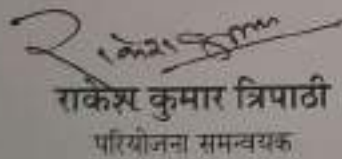 राकेश कुमार त्रिपाठी
परियोजना समन्वयक